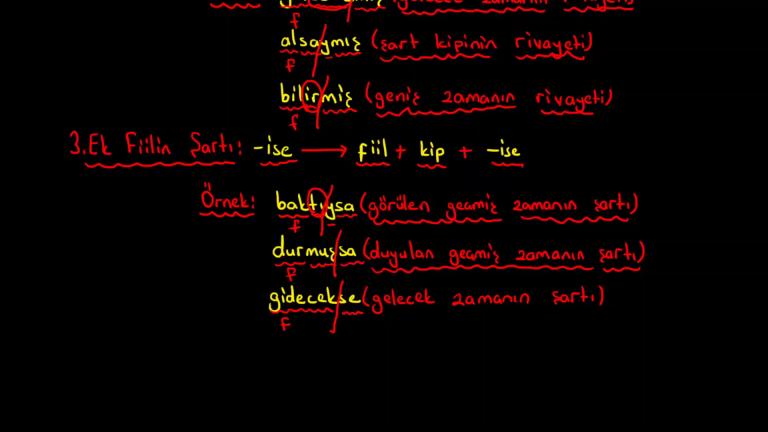 f
alsaymış (şart kipinin rivayeti)
f
bilirmiş (geniş zamanın rivayeti)
f
3. Ek Fiilin Şartı: -ise → fiil + kip + -ise
Örnek: baktıysa (görülen geçmiş zamanın şartı)
f
durmuşsa (duyulan geçmiş zamanın şartı)
f
gidecekse (gelecek zamanın şartı)
f